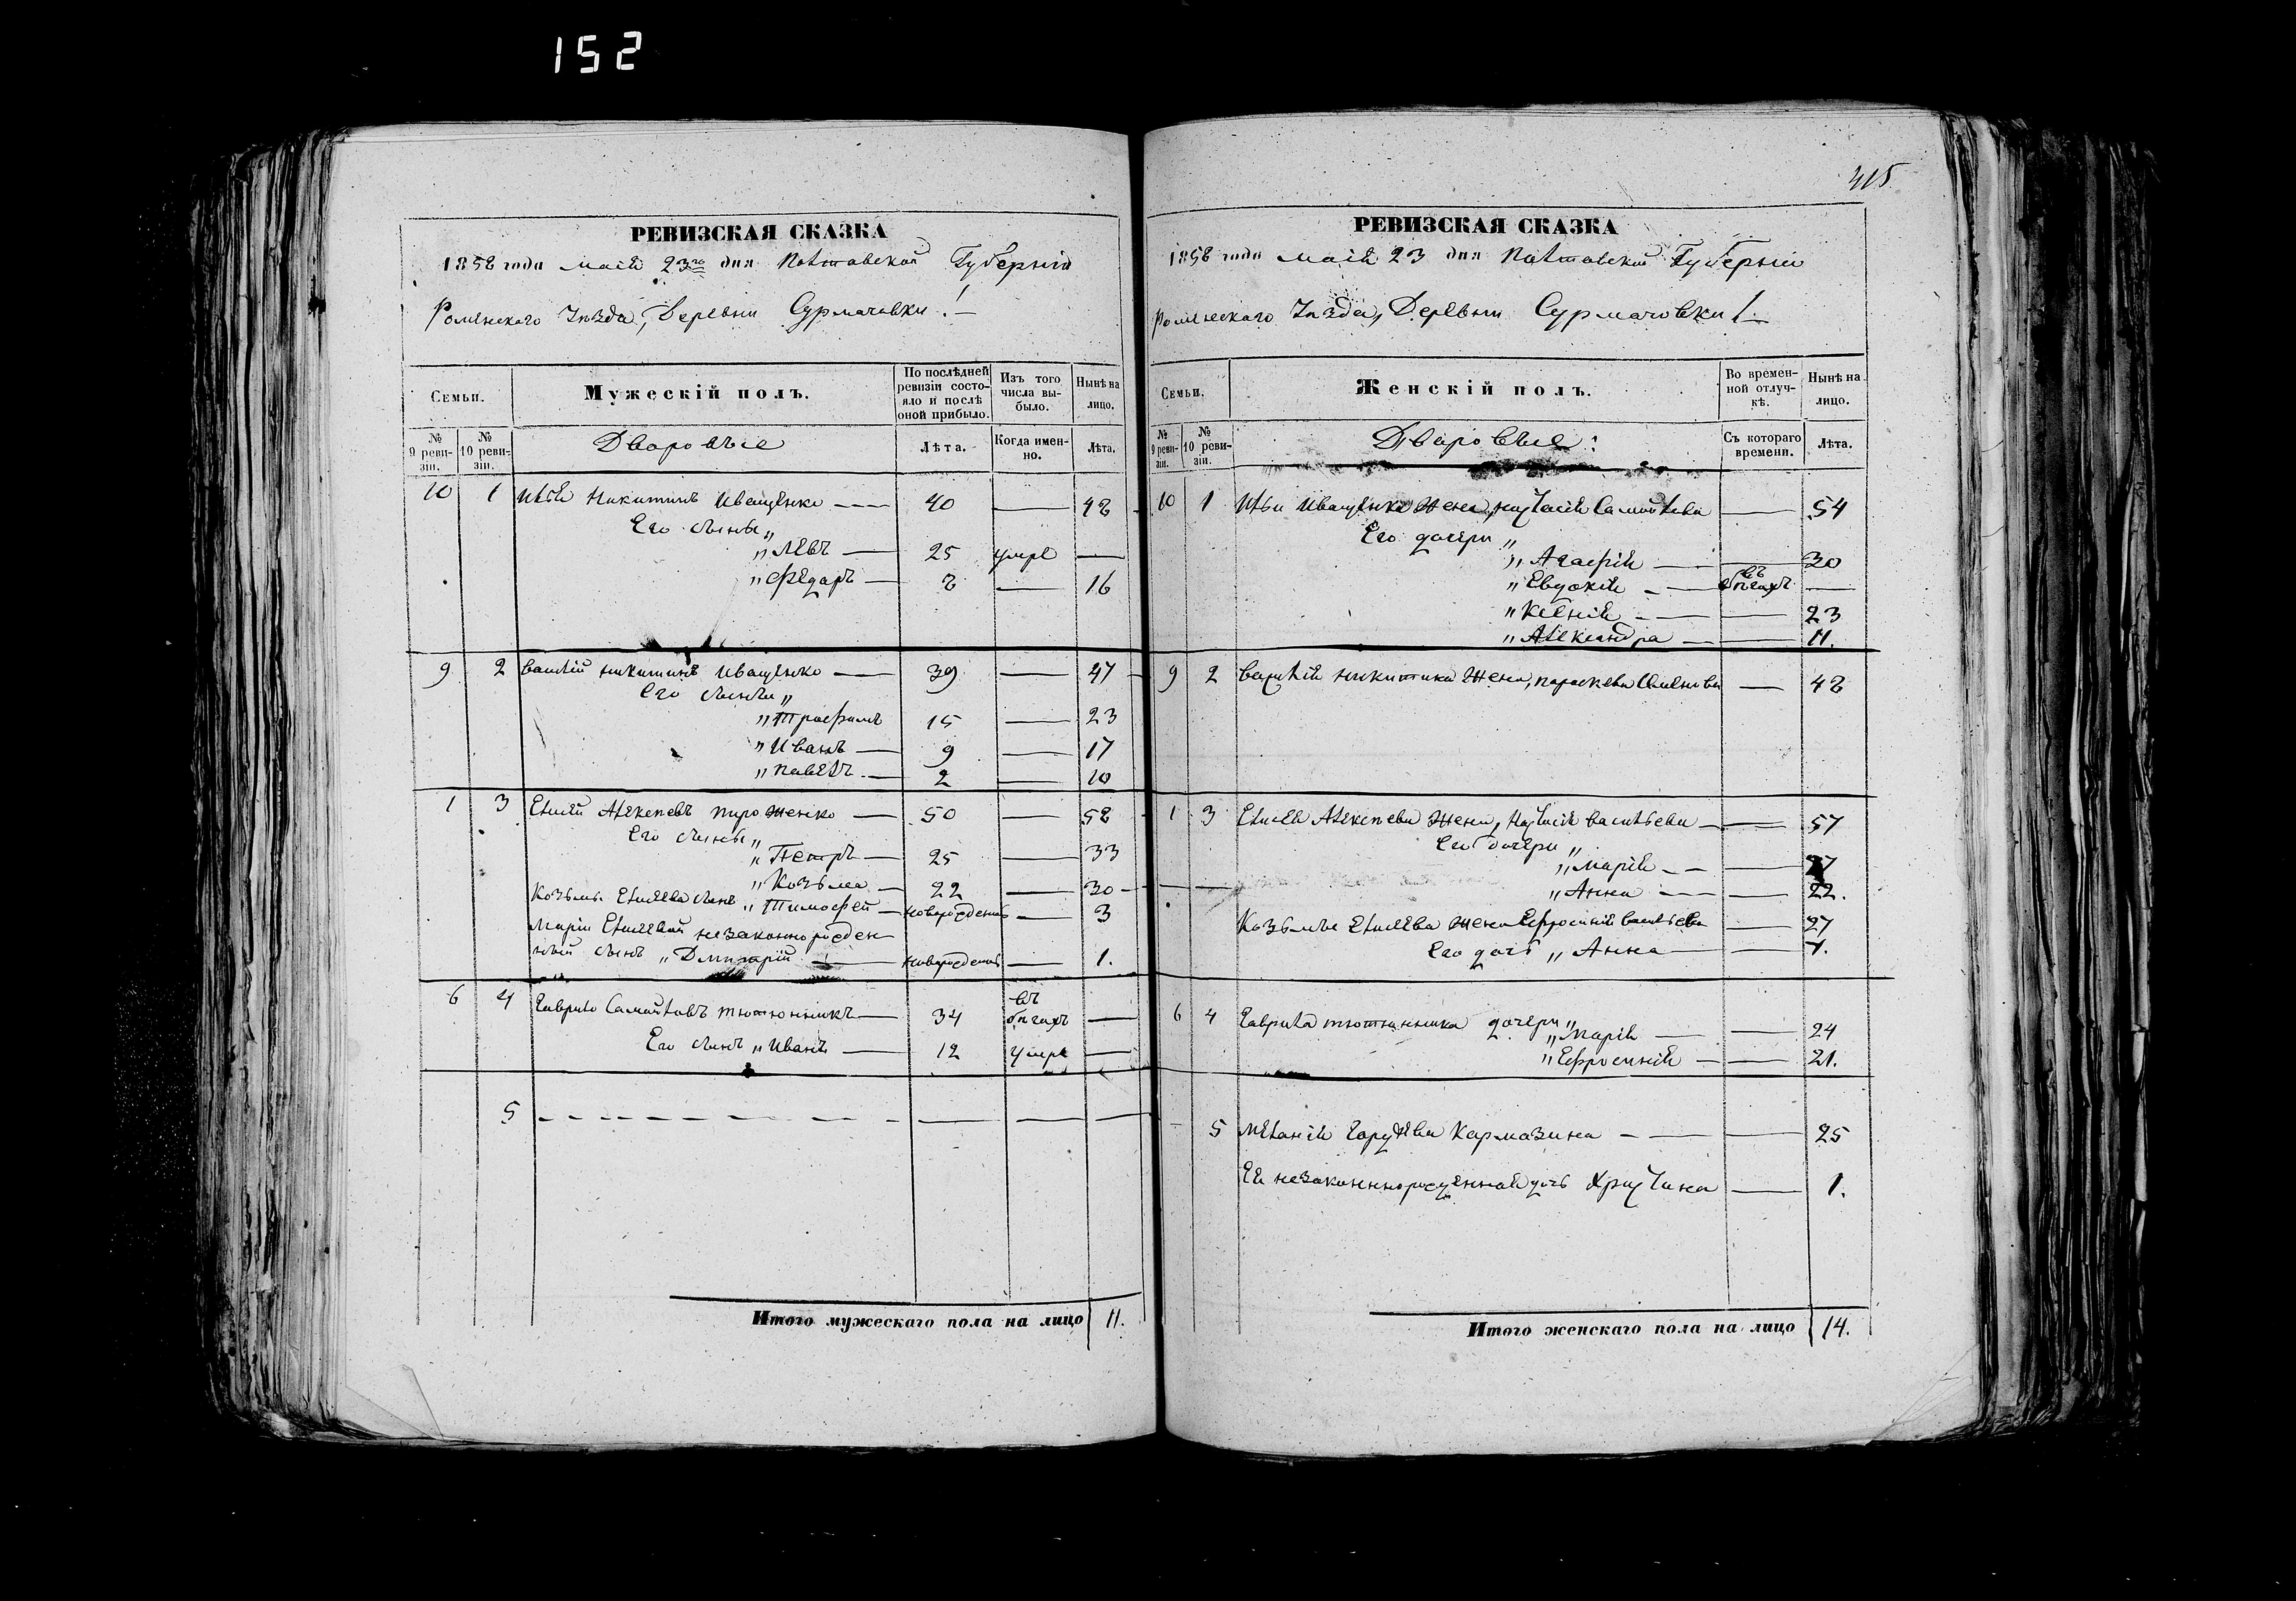 152
415
РЕВИЗСКАЯ СКАЗКА
1858 года маія 23го дня Полтавской Губерніи
Роменскаго Уѣзда, Деревни Сурмачовки!
Семьи.
Мужескій полъ.
По послѣдней ревизіи состояло и послѣ оной прибыло.
Изъ того числа выбыло.
Нынѣ на лицо.
№ 9 ревизіи.
№ 10 ревизіи.
Дворовые
Лѣта.
Когда именно.
Лѣта.
10 1 Илья Никитинъ Иващенко 40 — 48
Его сыны „
„ Левъ — 25 умре —
„ Федоръ — 8 — 16
9 2 Василій Никитинъ Иващенко — 39 — 47
Его сыны „
„ Трофимъ 15 — 23
„ Иванъ — 9 — 17
„ Павелъ — 2 — 10
1 3 Елисей Алексѣевъ Пироженко — 50 — 58
Его сыны „
„ Петръ — 25 — 33
„ Козьма — 22 — 30
Козьмы Елисѣева сынъ „ Тимофей — новорожденъ — 3
Маріи Елисѣевой незаконнорожден
ный сынъ „ Дмитрій — новорожденъ — 1.
6 4 Гаврило Самойловъ Тютюнникъ — 34 въ бѣгахъ —
Его сынъ „ Иванъ — 12 умре —
5 — — — —
Итого мужескаго пола на лицо 11.
РЕВИЗСКАЯ СКАЗКА
1858 года маія 23 дня Полтавской Губерніи
Роменскаго Уѣзда, Деревни Сурмачовки!
Семьи.
Женскій полъ.
Во временной отлучкѣ.
Нынѣ на лицо.
№ 9 ревизіи.
№ 10 ревизіи.
Дворовые:
Съ котораго времени.
Лѣта.
10 1 Ильи Иващенка жена, Настасія Самойлова — 54
Его дочери „
„ Агафія — — 30
„ Евдокія — въ бѣгахъ —
„ Ксенія — — 23
„ Александра — — 11.
9 2 Василія Никитина жена, Параскева Семенова — 48
1 3 Елисея Алексѣева жена, Настасія Васильева — 57
Его дочери „
„ Марія — — 27
„ Анна — — 22.
Козьмы Елисѣева жена Ефросинія Васильева — 27
Его дочь „ Анна — 7.
6 4 Гаврила Тютюнника дочери „
„ Марія — — 24
„ Ефросинія — — 21.
5 Меланія Гордѣева Кармазина — — 25
Ея незаконнорожденная дочь Христина — 1.
Итого женскаго пола на лицо 14.